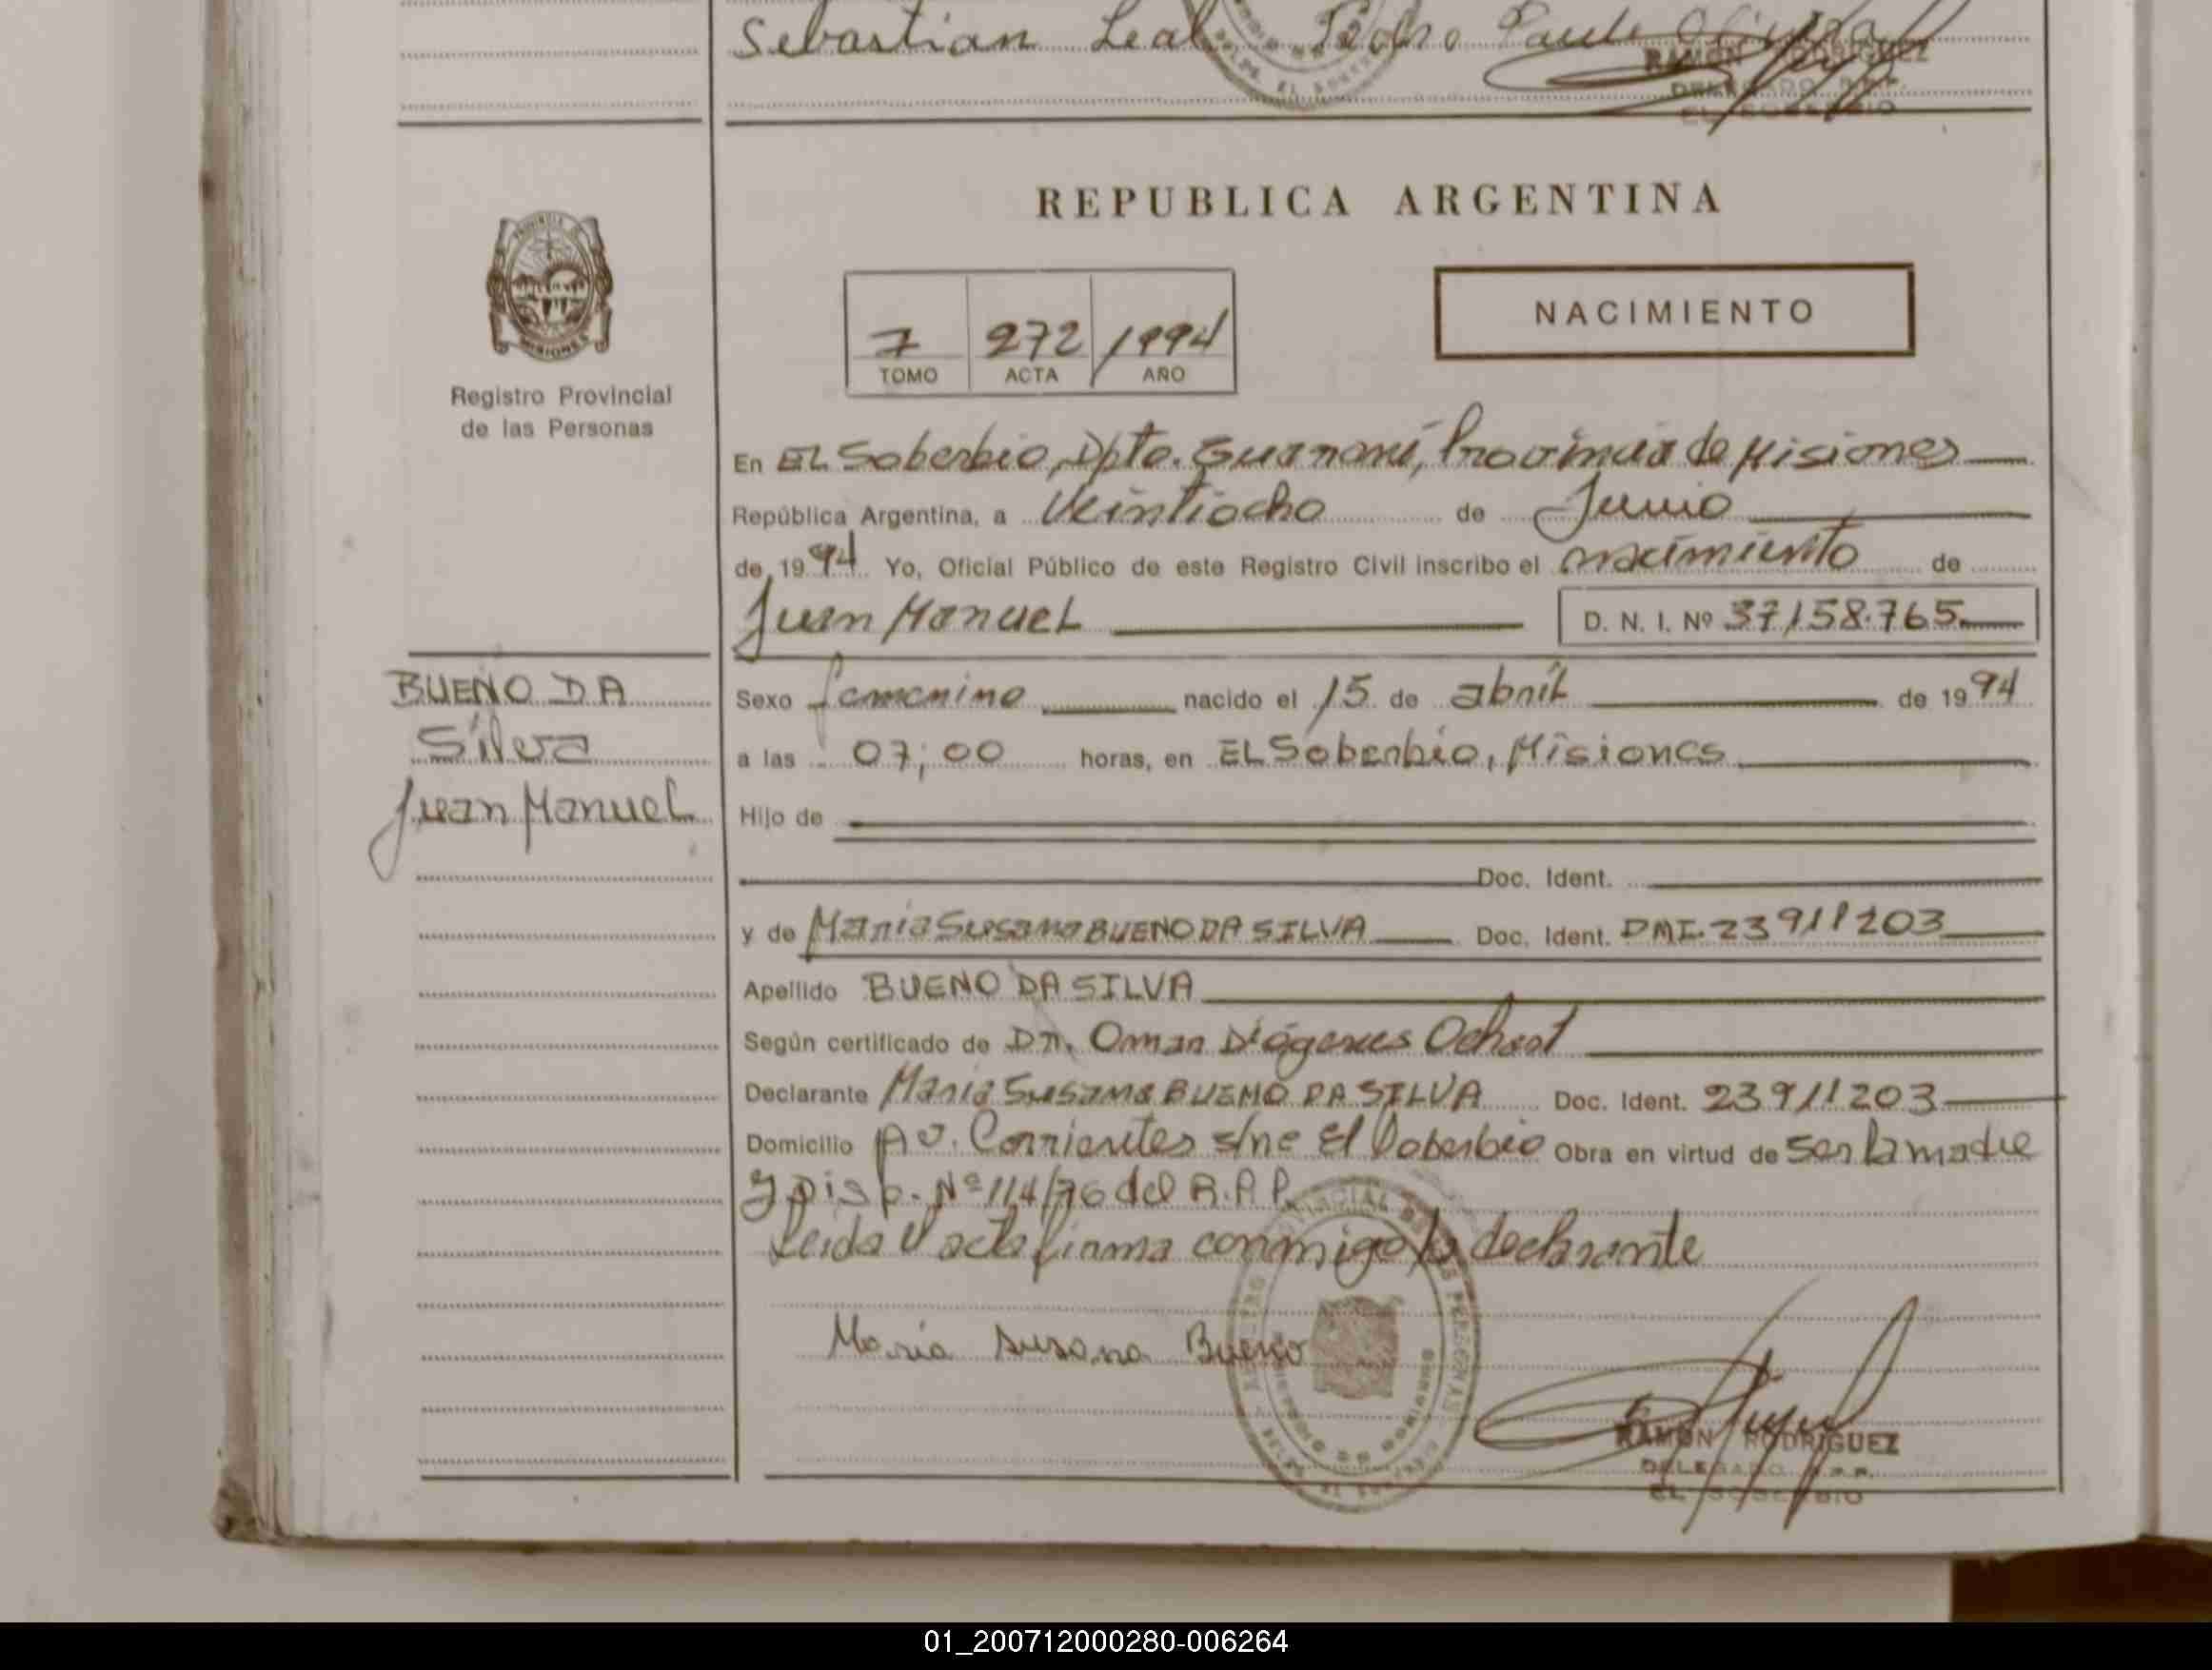 Sebastian Leal Pedro Paulo
RAMON RODRIGUEZ
DELEGADO R.P.P.
EL SOBERBIO
REPUBLICA ARGENTINA
PROVINCIA DE
MISIONES
Registro Provincial
de las Personas
7 272 1994
TOMO ACTA AÑO
NACIMIENTO
En EL Soberbio, Dpto. Guaraní, Provincia de Misiones
República Argentina, a Veintiocho de Junio
de 1994 Yo, Oficial Público de este Registro Civil inscribo el nacimiento de
Juan Manuel D. N. I. Nº 37158.765
BUENO DA
Silva
Juan Manuel
Sexo femenino nacido el 15 de abril de 1994
a las 07;00 horas, en EL Soberbio, Misiones
Hijo de
Doc. Ident.
y de Maria Susana BUENO DA SILVA Doc. Ident. DMI. 23911203
Apellido BUENO DA SILVA
Según certificado de Dr. Omar Diógenes
Declarante Maria Susana BUENO DA SILVA Doc. Ident. 23911203
Domicilio Av. Corrientes s/ne El Soberbio Obra en virtud de ser la madre
y Disp. Nº 114/76 del R.P.P.
Leida el acta firma conmigo la declarante
Maria Susana Bueno
RAMON RODRIGUEZ
DELEGADO R.P.P.
EL SOBERBIO
01_200712000280-006264